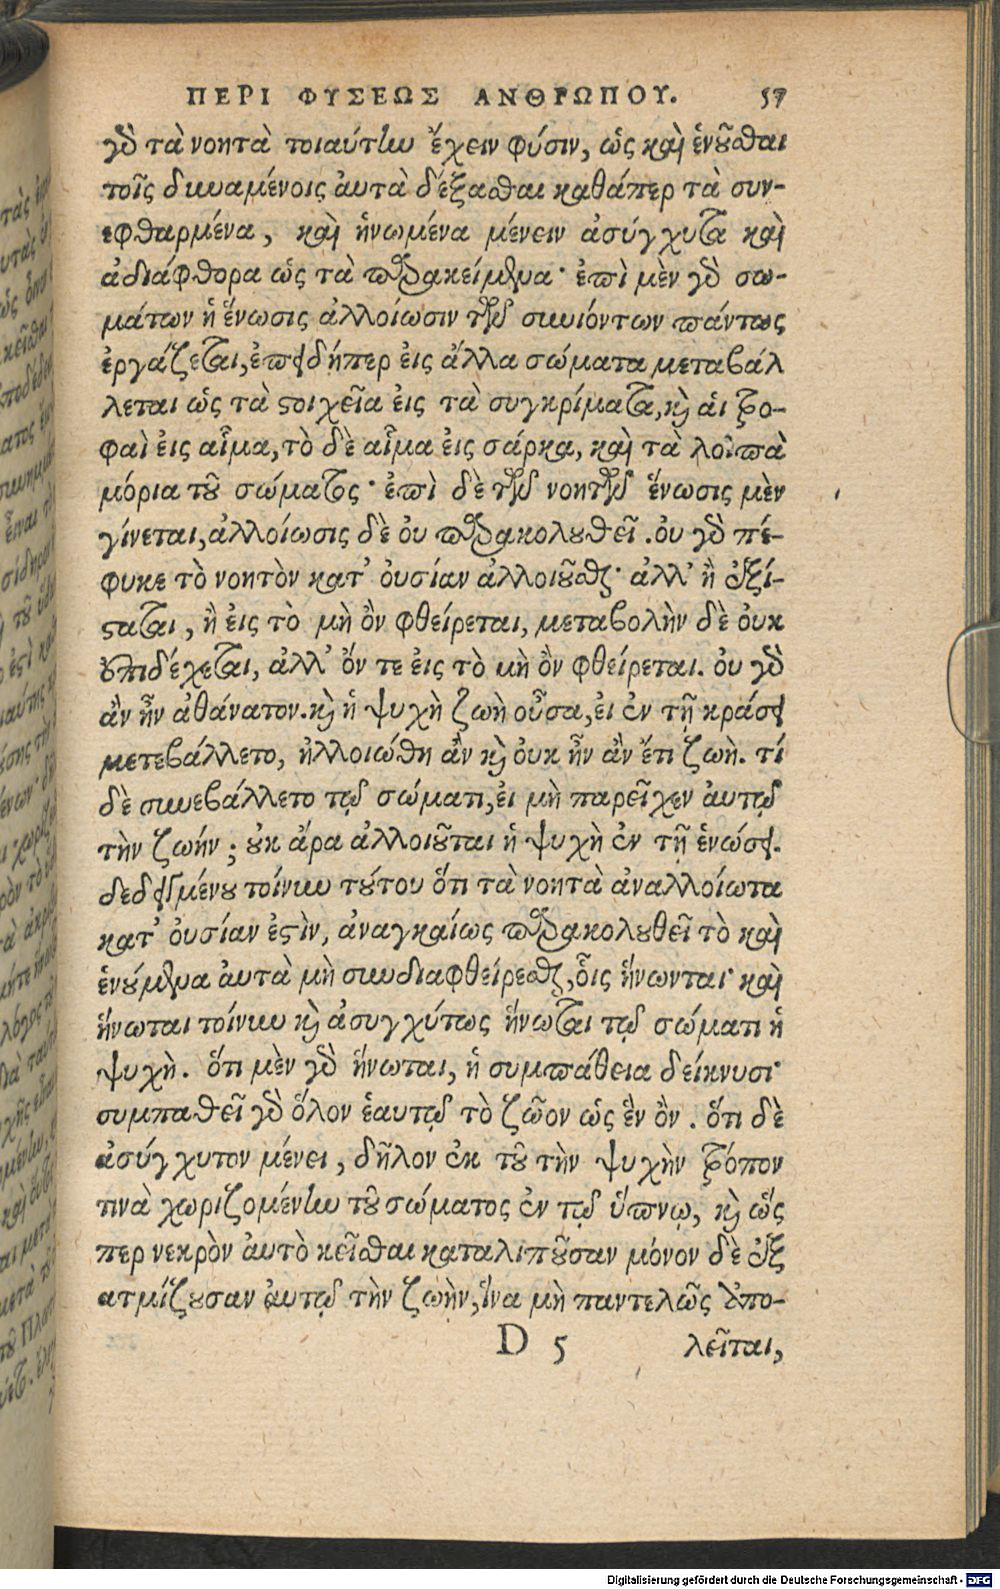 ΠΕΡΙ ΦΥΣΕΩΣ ΑΝΘΡΩΠΟΥ. 57
γὸ τὰ νοητὰ τοιαύτην ἔχειν φύσιν, ὡς καὶ ἑνοῦσθαι
τοῖς δυναμένοις ἀυτὰ δέξασθαι καθάπερ τὰ συν-
εφθαρμένα, καὶ ἡνωμένα μένειν ἀσύγχυτα καὶ
ἀδιάφθορα ὡς τὰ παρακείμενα· ἐπὶ μὲν γὸ σω-
μάτων ἡ ἕνωσις ἀλλοίωσιν τῶν συνιόντων πάντως
ἐργάζεται, ἐπειδήπερ ἐις ἄλλα σώματα μεταβάλ
λεται ὡς τὰ στοιχεῖα ἐις τὰ συγκρίματα, κὶ ἁι τρο-
φαὶ ἐις αἷμα, τὸ δὲ αἷμα ἐις σάρκα, καὶ τὰ λοιπὰ
μόρια τοῦ σώματος· ἐπὶ δὲ τῶν νοητῶν ἕνωσις μὲν
γίνεται, ἀλλοίωσις δὲ ὀυ παρακολουθεῖ. ὀυ γὸ πέ-
φυκε τὸ νοητὸν κατ' ὀυσίαν ἀλλοιοῦσθαι· ἀλλ' ἢ ἐξί-
σταται, ἢ ἐις τὸ μὴ ὂν φθείρεται, μεταβολὴν δὲ ὀυκ
ἐπιδέχεται, ἀλλ' ὄν τε ἐις τὸ μὴ ὂν φθείρεται. ὀυ γὸ
ἂν ἦν ἀθάνατον. κὶ ἡ ψυχὴ ζωὴ οὖσα, ἐι ἐν τῇ κράσει
μετεβάλλετο, ἠλλοιώθη ἂν κὶ ὀυκ ἦν ἂν ἔτι ζωὴ. τί
δὲ συνεβάλλετο τῷ σώματι, ἐι μὴ παρεῖχεν ἀυτῷ
τὴν ζωήν; ὀυκ ἄρα ἀλλοιοῦται ἡ ψυχὴ ἐν τῇ ἑνώσει.
δεδειγμένου τοίνυν τούτου ὅτι τὰ νοητὰ ἀναλλοίωτα
κατ' ὀυσίαν ἐστὶν, ἀναγκαίως παρακολουθεῖ τὸ καὶ
ἑνούμενα ἀυτὰ μὴ συνδιαφθείρεσθαι, οἷς ἥνωνται· καὶ
ἥνωται τοίνυν κὶ ἀσυγχύτως ἥνωται τῷ σώματι ἡ
ψυχὴ. ὅτι μὲν γὸ ἥνωται, ἡ συμπάθεια δείκνυσι·
συμπαθεῖ γὸ ὅλον ἑαυτῷ τὸ ζῶον ὡς ἓν ὂν. ὅτι δὲ
ἀσύγχυτον μένει, δῆλον ἐκ τοῦ τὴν ψυχὴν τρόπον
τινὰ χωριζομένην τοῦ σώματος ἐν τῷ ὕπνῳ, κὶ ὥς
περ νεκρὸν ἀυτὸ κεῖσθαι καταλιποῦσαν μόνον δὲ ἐξ
ατμίζουσαν ἀυτῷ τὴν ζωὴν, ἵνα μὴ παντελῶς ἀπο-
D 5 λεῖται,
Digitalisierung gefördert durch die Deutsche Forschungsgemeinschaft - DFG